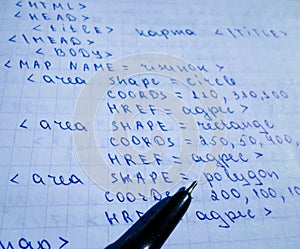 <HTML>
<HEAD>
<title> карта </title>
</HEAD>
<BODY>
<MAP NAME = >
<area shape = circle
COORDS = 210, 310, 100
HREF = адрес>
<area SHAPE = rectange
COORDS = 250, 50, 400,
HREF = адрес>
<area SHAPE = polygon
COORDS = 200, 100, 10
HREF = адрес>
map>